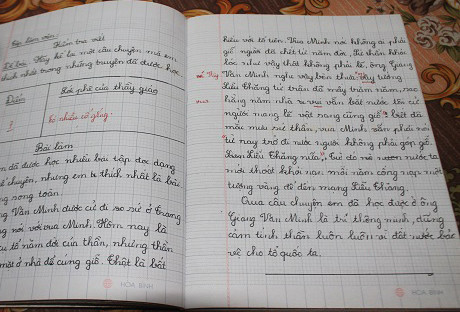 Tập làm văn
Kiểm tra viết
Đề bài: Hãy kể lại một câu chuyện mà em
thích nhất trong những truyện đã được học.
Điểm
Lời phê của thầy giáo
Có nhiều cố gắng!
Bài làm
đã được học nhiều bài tập đọc dạng
kể chuyện, nhưng em thích nhất là bài
song toàn.
Văn Minh được cử đi sứ ở trong
nói với vua Minh: Hôm nay là
tổ năm đời của thần, nhưng thần
mặt ở nhà để cúng giỗ. Thật là bất
hiếu với tổ tiên. Vua Minh nói không ai phải
giỗ người đã chết từ năm đời. Từ thần khóc
lóc như vậy thật không phải lẽ, ông Giang
Văn Minh nghe vậy bèn thưa: "Vậy tướng
Liễu Thăng tử trận đã mấy trăm năm, sao
hằng năm nhà vua vẫn bắt nước tôi cử
người mang lễ vật sang cúng giỗ" biết đã
mắc mưu sứ thần, vua Minh vẫn phải nói
từ nay trở đi nước người không phải góp giỗ
Liễu Thăng nữa". Từ đó nê nươn nước ta
mới thoát khỏi nạn mỗi năm cống nạp một
tượng vàng để đền mạng Liễu Thăng.
Qua câu chuyện em đã học được ở ông
Giang Văn Minh là trí thông minh, dũng
cảm tinh thần luôn luôn vì đất nước bảo
vệ cho tổ quốc ta.
vua
HÒA BÌNH
HÒA BÌNH